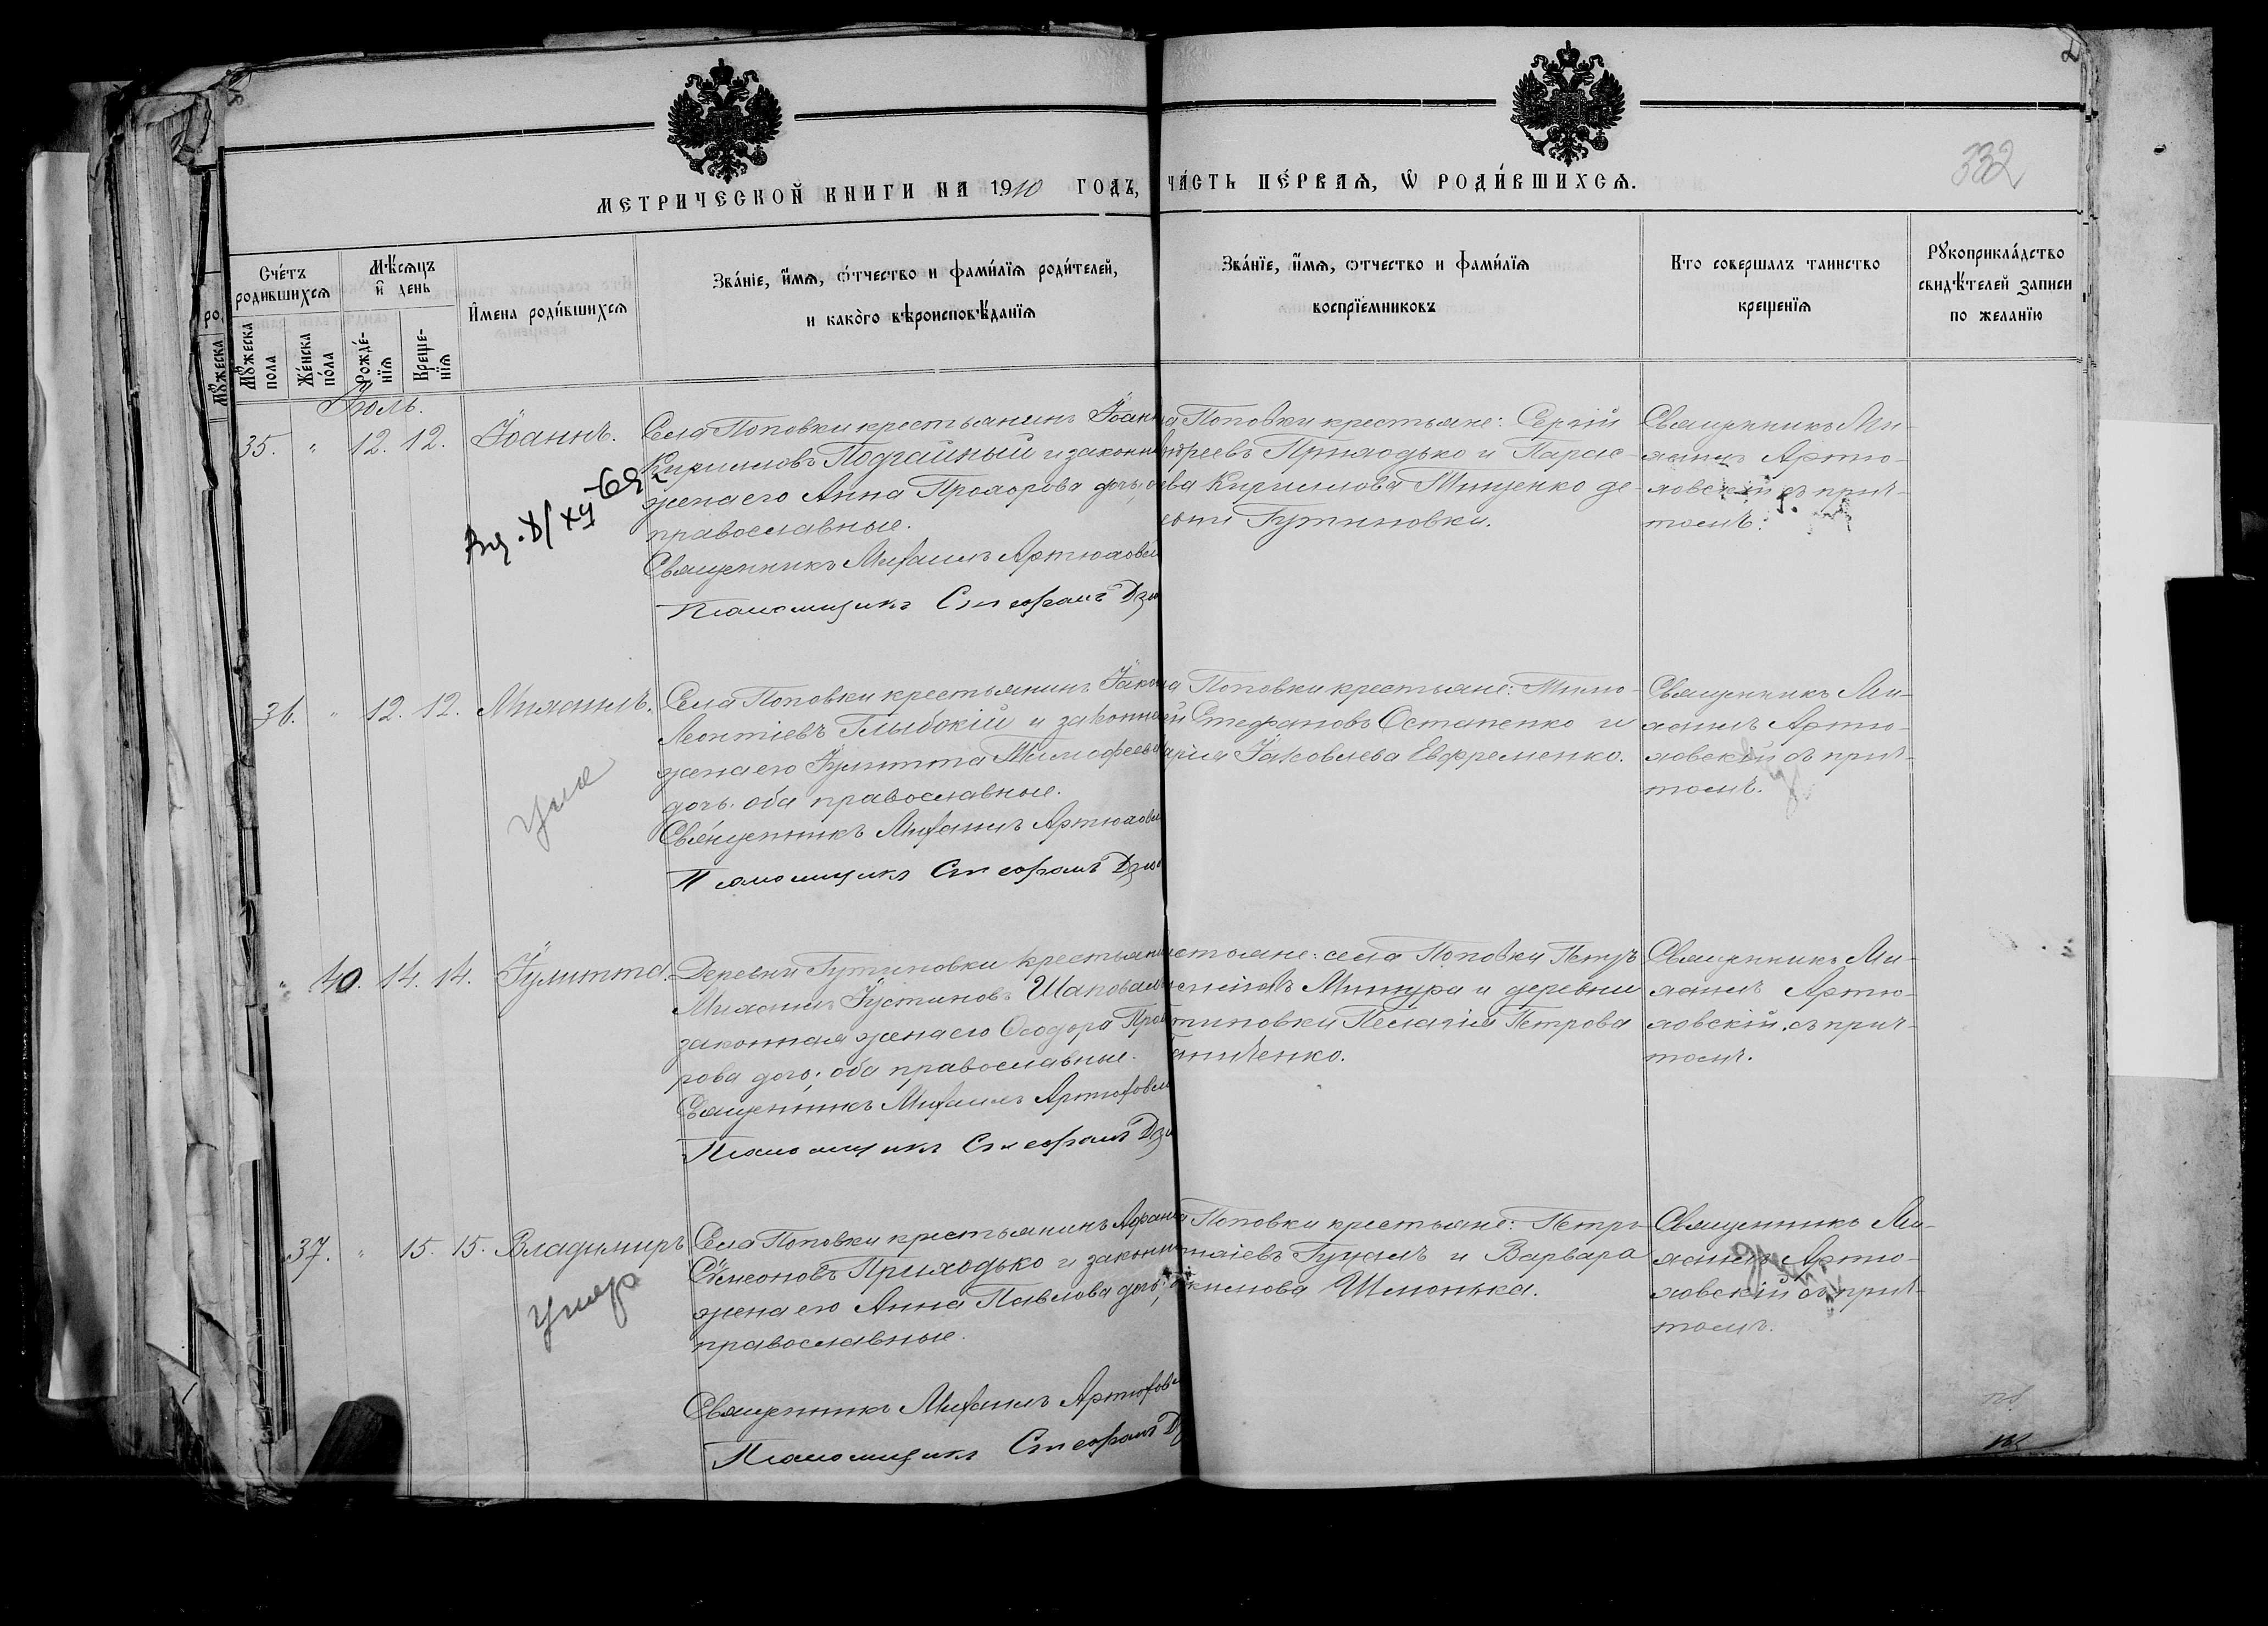 332
МЕТРИЧЕСКОЙ КНИГИ НА 1910 ГОДЪ, ЧА́СТЬ ПЕ́РВАЯ, Ѡ РОДИ́ВШИХСЯ.
Сче́тъ родившихся
Мѣ́сяцъ и день
Имена роди́вшихся
Зва́ніе, и́мя, о́тчество и фами́лїя роди́телей,
и како́го вѣроисповѣ́данїя
Зва́нїе, и́мя, ѻтчество и фами́лїя
воспрїемниковъ
Кто совершалъ таинство
крещенїя
Рꙋкоприкла́дство
свидѣ́телей записи
по желанїю
Мꙋ́жеска пола
Же́нска по́ла
Рожде́нїя
Креще́нїя
Іюль.
35. " 12. 12. Іоаннъ.
Села Поповки крестьянинъ Іоан
Кирилловъ Подгайный и законн
жена его Анна Прохорова дочь, о
православные.
Священникъ Михаилъ Артюхов
Псаломщикъ Стефанъ Дзю
а Поповки крестьяне: Сергій
дреевъ Приходько и Парас-
ева Кириллова Тищенко де-
вни Гутиновки.
Священникъ Ми-
хаилъ Артю-
ховскій съ прич-
томъ.
36. " 12. 12. Михаилъ.
Села Поповки крестьянинъ Іако
Леонтіевъ Глыбокій и законн
жена его Іулитта Тимофеев
дочь, оба православные.
Священникъ Михаилъ Артюхов
Псаломщикъ Стефанъ Дзю
а Поповки крестьяне: Тимо-
ей Стефановъ Остапенко и
арія Іаковлева Евфременко.
Священникъ Ми-
хаилъ Артю-
ховскій съ прич-
томъ.
" 40. 14. 14. Іулитта.
Деревни Гутиновки крестьян
Михаилъ Іустиновъ Шаповал
законная жена его Ѳеодора Про
рова дочь; оба православные.
Священникъ Михаилъ Артюхов
Псаломщикъ Стефанъ Дзю
естьяне: села Поповки Петръ
Мишура и деревни
тиновки Пелагія Петрова
Священникъ Ми-
хаилъ Артю-
ховскій съ прич-
томъ.
37. " 15. 15. Владимиръ
умеръ
Села Поповки крестьянинъ Афана
Симеоновъ Приходько и законн
жена его Анна Павлова дочь;
православные.
Священникъ Михаилъ Артюхов
Псаломщикъ Стефанъ Дз
а Поповки крестьяне: Петръ
Гуцалъ и Варвара
кимова Шмонька.
Священникъ Ми-
хаилъ Артю-
ховскій съ прич-
томъ.